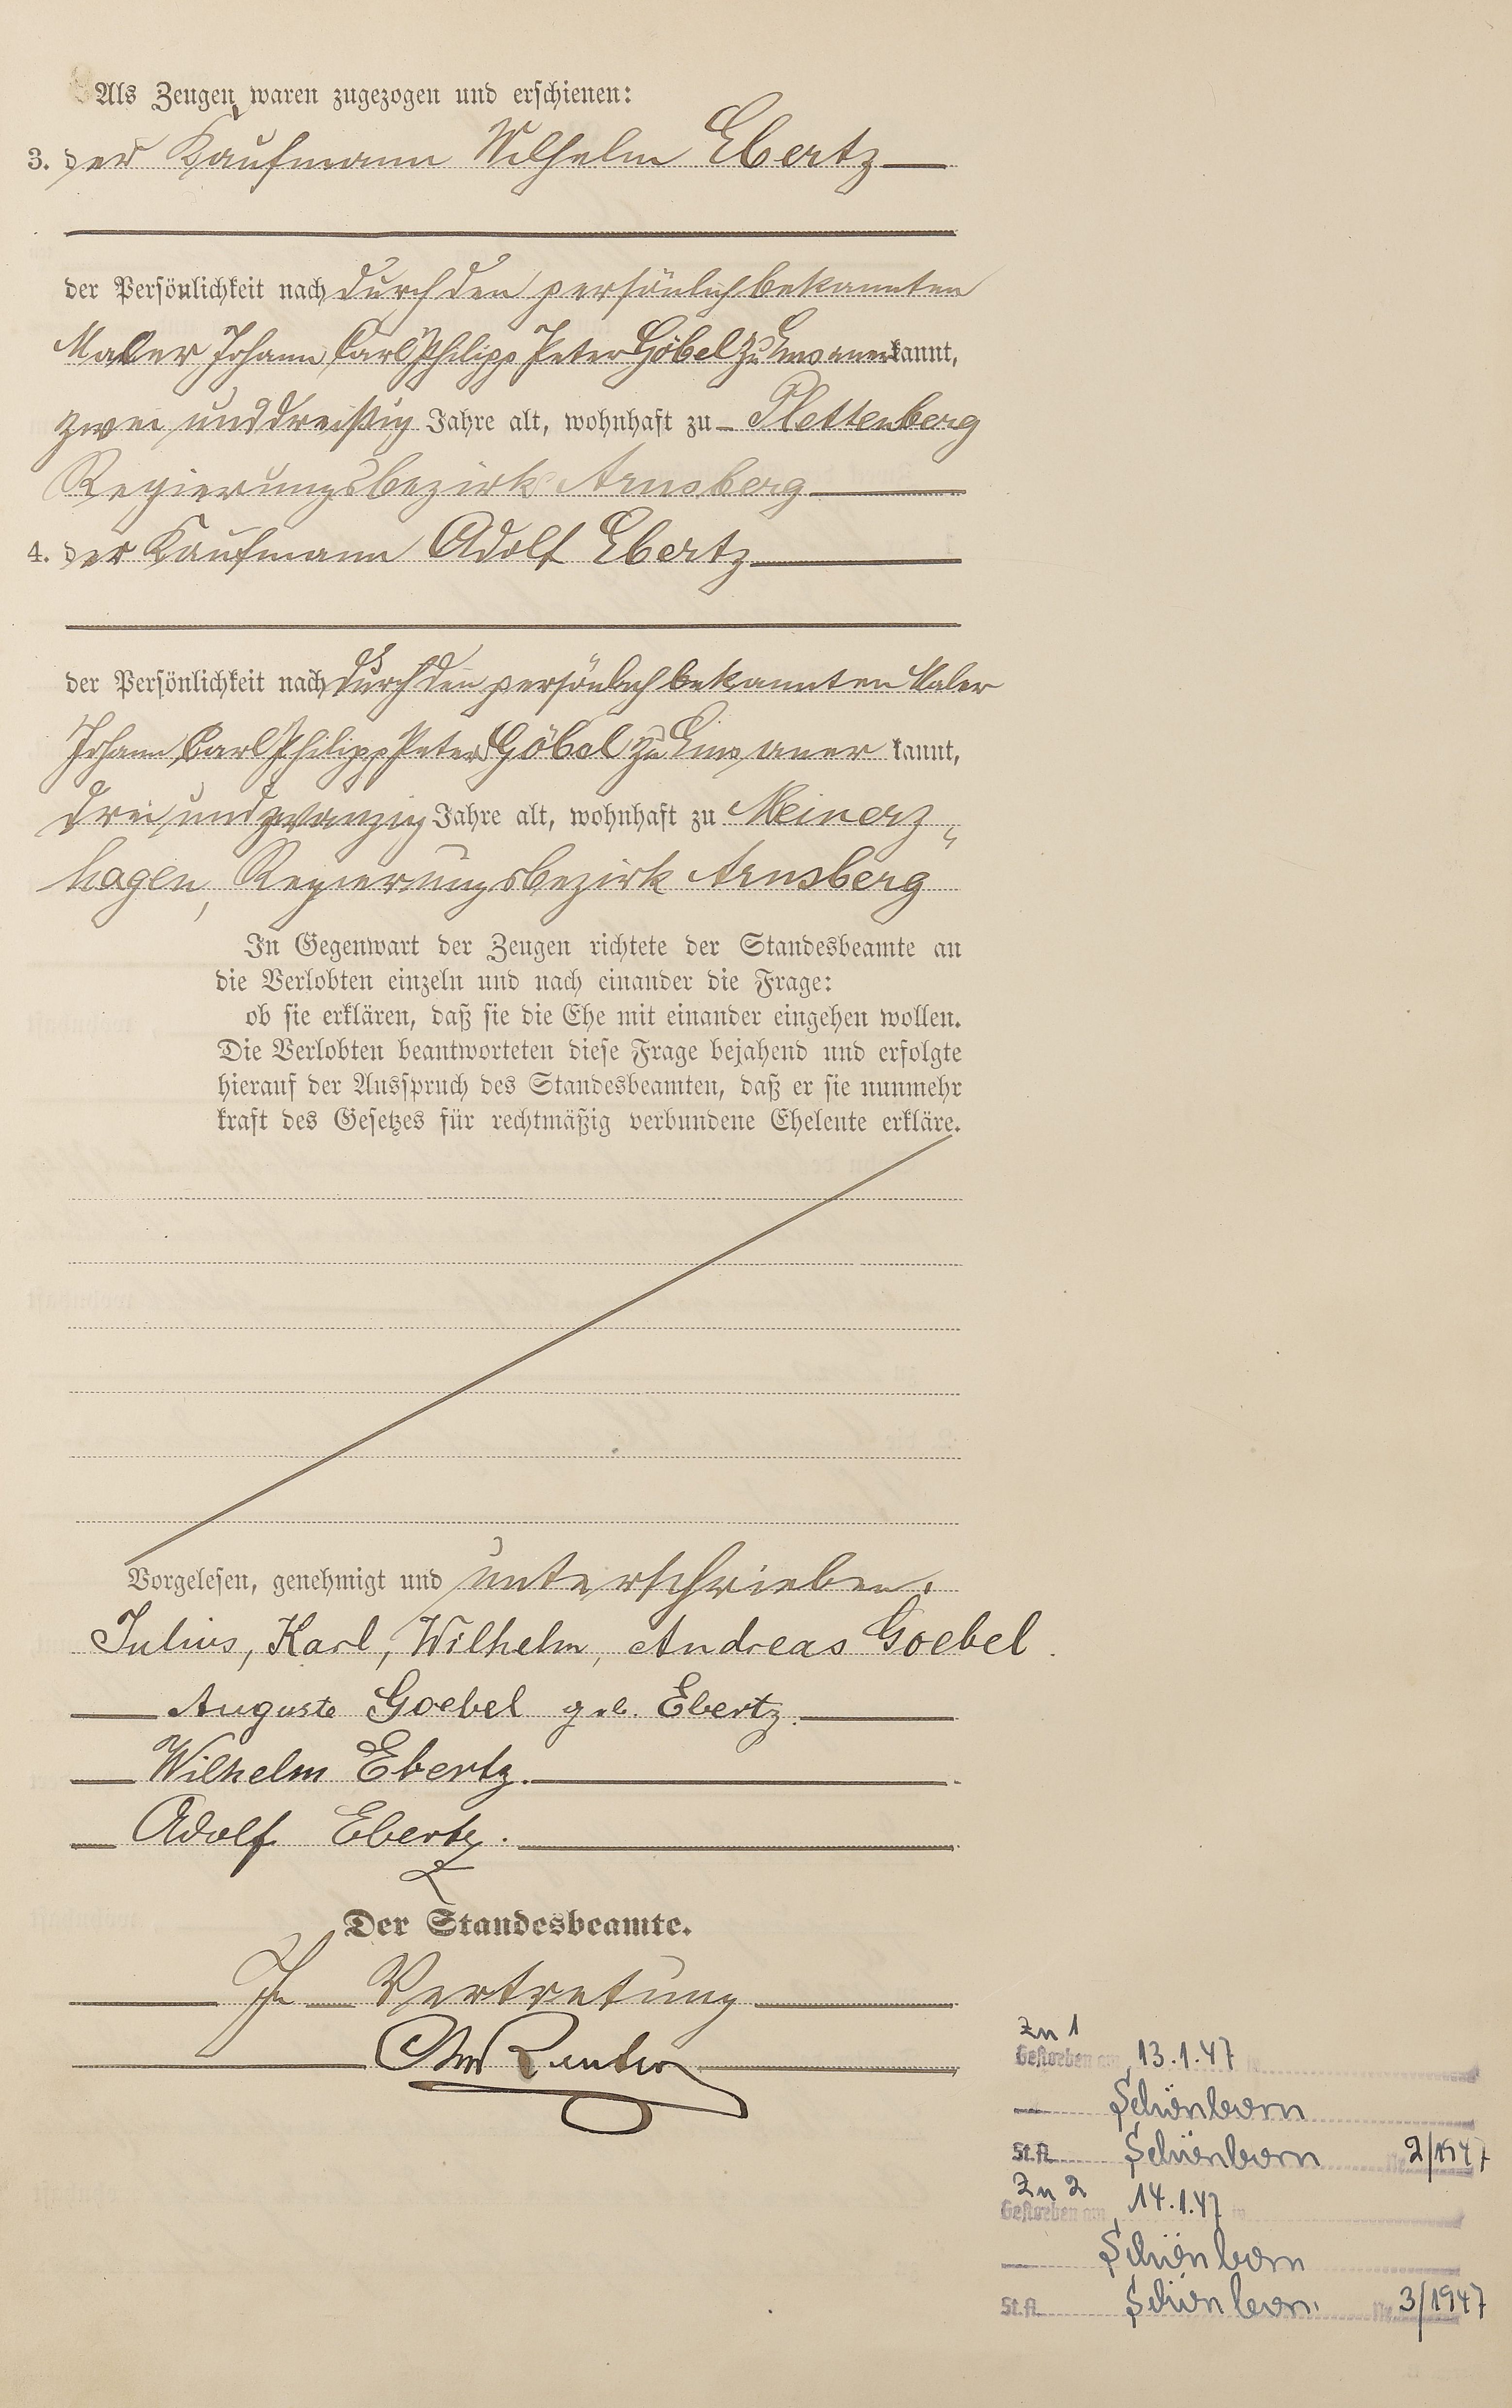 Als Zeugen waren zugezogen und erschienen:
3. der Kaufmann Wilhelm Ebertz
der Persönlichkeit nach durch den persönlich bekannten
Maler Johann Carl Philipp Peter Göbel zu Ems anerkannt,
zwei und dreißig Jahre alt, wohnhaft zu Plettenberg
Regierungsbezirk Arnsberg
4. der Kaufmann Adolf Ebertz
der Persönlichkeit nach durch den persönlich bekannten Maler
Johann Carl Philipp Peter Göbel zu Ems aner kannt,
drei und zwanzig Jahre alt, wohnhaft zu Meinerz„
hagen, Regierungsbezirk Arnsberg
In Gegenwart der Zeugen richtete der Standesbeamte an
die Verlobten einzeln und nach einander die Frage:
ob sie erklären, daß sie die Ehe mit einander eingehen wollen.
Die Verlobten beantworteten diese Frage bejahend und erfolgte
hierauf der Ausspruch des Standesbeamten, daß er sie nunmehr
kraft des Gesetzes für rechtmäßig verbundene Eheleute erkläre.
Vorgelesen, genehmigt und unterschrieben.
Julius, Karl, Wilhelm, Andreas Goebel.
Auguste Goebel geb. Ebertz.
Wilhelm Ebertz.
Adolf Ebertz.
Der Standesbeamte.
In Vertretung
Zu 1
Gestorben am 13.1.47 in
Schönborn
St.A. Schönborn Nr. 2/1947
Zu 2
Gestorben am 14.1.47 in
Schönborn
St.A. Schönborn Nr. 3/1947